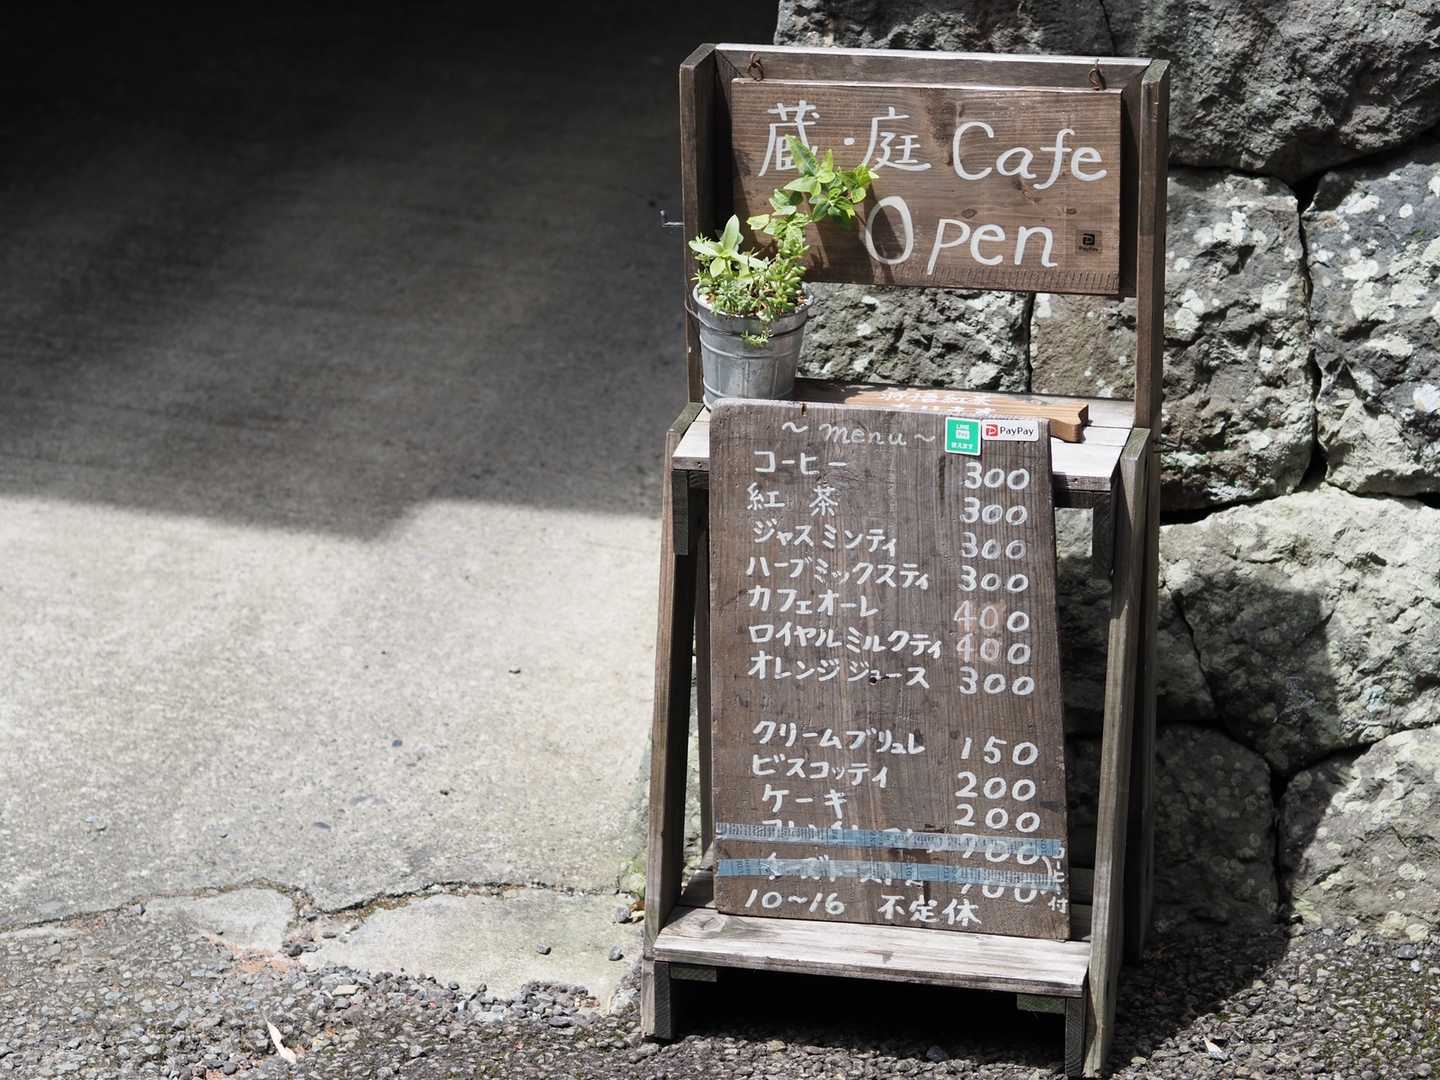 蔵・庭 Cafe
Open
PayPay
紅茶
～menu～
LINE Pay 使えます
PayPay
コーヒー 300
紅茶 300
ジャスミンティ 300
ハーブミックスティ 300
カフェオーレ 400
ロイヤルミルクティ 400
オレンジジュース 300
クリームブリュレ 150
ビスコッティ 200
ケーキ 200
700
700
付
10～16 不定休